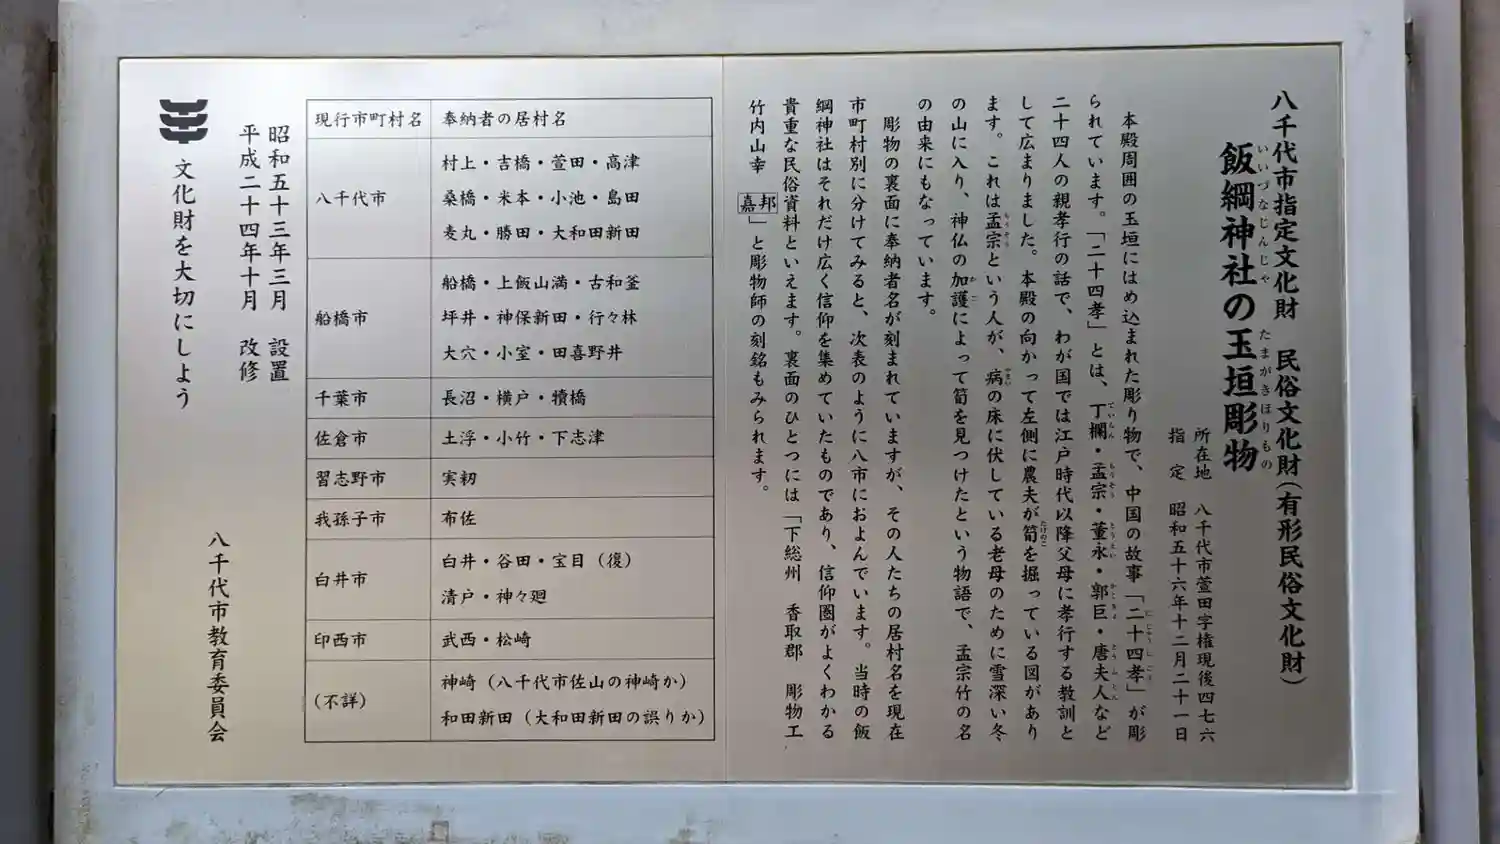 八千代市指定文化財　民俗文化財(有形民俗文化財)
飯綱神社の玉垣彫物
いいづなじんじゃ　たまがきほりもの
所在地　八千代市萱田字権現後四七六
指　定　昭和五十六年十二月二十一日
本殿周囲の玉垣にはめ込まれた彫り物で、中国の故事「二十四孝」が彫
られています。「二十四孝」とは、丁欄・孟宗・董永・郭巨・唐夫人など
二十四人の親孝行の話で、わが国では江戸時代以降父母に孝行する教訓と
して広まりました。本殿の向かって左側に農夫が筍を掘っている図があり
ます。これは孟宗という人が、病の床に伏している老母のために雪深い冬
の山に入り、神仏の加護によって筍を見つけたという物語で、孟宗竹の名
の由来にもなっています。
彫物の裏面に奉納者名が刻まれていますが、その人たちの居村名を現在
市町村別に分けてみると、次表のように八市におよんでいます。当時の飯
綱神社はそれだけ広く信仰を集めていたものであり、信仰圏がよくわかる
貴重な民俗資料といえます。裏面のひとつには「下総州　香取郡　彫物工
竹内山幸　嘉邦」と彫物師の刻銘もみられます。
現行市町村名　奉納者の居村名
八千代市　村上・吉橋・萱田・高津
桑橋・米本・小池・島田
麦丸・勝田・大和田新田
船橋市　船橋・上飯山満・古和釜
坪井・神保新田・行々林
大穴・小室・田喜野井
千葉市　長沼・横戸・犢橋
佐倉市　土浮・小竹・下志津
習志野市　実籾
我孫子市　布佐
白井市　白井・谷田・宝目（復）
清戸・神々廻
印西市　武西・松崎
(不詳)　神崎（八千代市佐山の神崎か）
和田新田（大和田新田の誤りか）
昭和五十三年三月　設置
平成二十四年十月　改修
文化財を大切にしよう
八千代市教育委員会